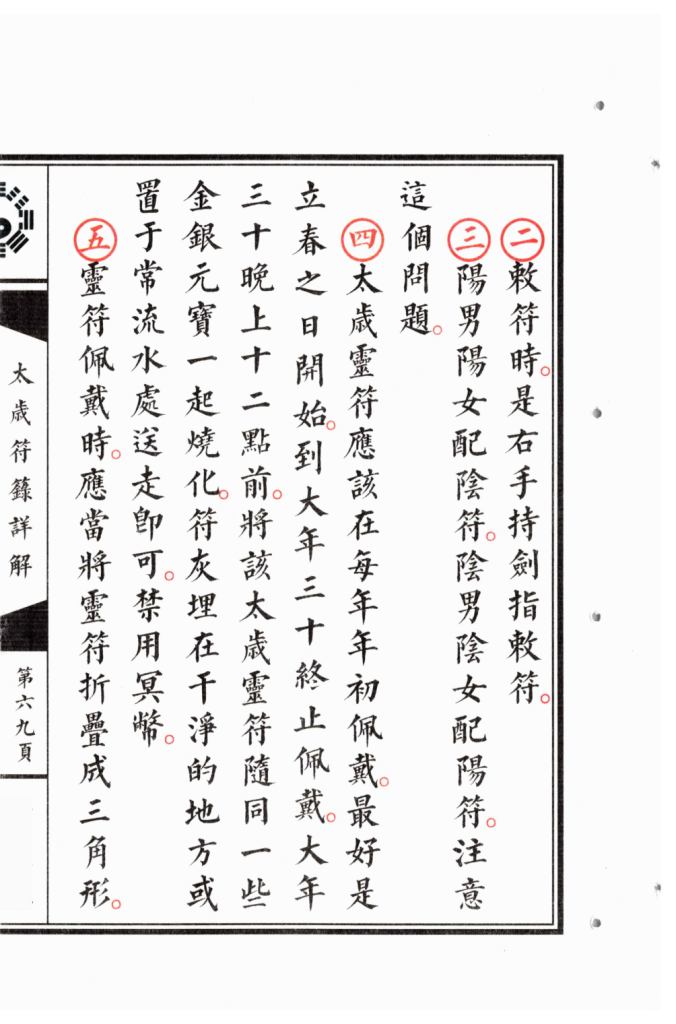 二敕符時。是右手持劍指敕符。
三陽男陽女配陰符。陰男陰女配陽符。注意
這個問題。
四太歲靈符應該在每年年初佩戴。最好是
立春之日開始。到大年三十終止佩戴。大年
三十晚上十二點前。將該太歲靈符隨同一些
金銀元寶一起燒化。符灰埋在干淨的地方或
置于常流水處送走卽可。禁用冥幣。
五靈符佩戴時。應當將靈符折疊成三角形。
太歲符籙詳解
第六九頁